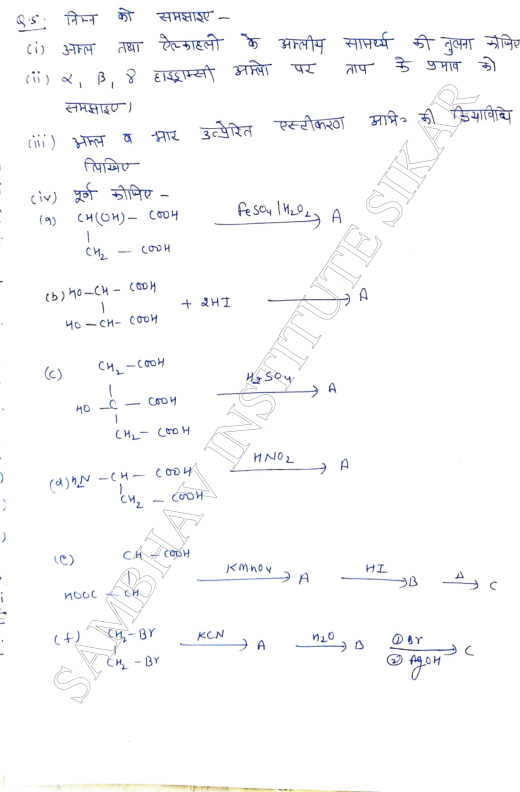 Q.5: निम्न को समझाइए -
(i) अम्ल तथा ऐल्काहलो के अम्लीय सामर्थ्य की तुलना कीजिए
(ii) α, β, γ हाइड्राक्सी अम्लो पर ताप के प्रभाव को
समझाइए।
(iii) अम्ल व क्षार उत्प्रेरित एस्टीकरण अभि० की क्रियाविधि
लिखिए
(iv) पूर्ण कीजिए -
(a) CH(OH) - COOH FeSO4 / H2O2 → A
|
CH2 - COOH
(b) HO - CH - COOH
| + 2HI → A
HO - CH - COOH
(c) CH2 - COOH
|
HO - C - COOH H2SO4 → A
|
CH2 - COOH
(d) H2N - CH - COOH HNO2 → A
|
CH2 - COOH
(e) CH - COOH
|| KMnO4 → A HI → B Δ → C
HOOC - CH
(f) CH2 - Br KCN → A H2O → B ① Br ② AgOH → C
|
CH2 - Br
SAMBHAV INSTITUTE SIKAR